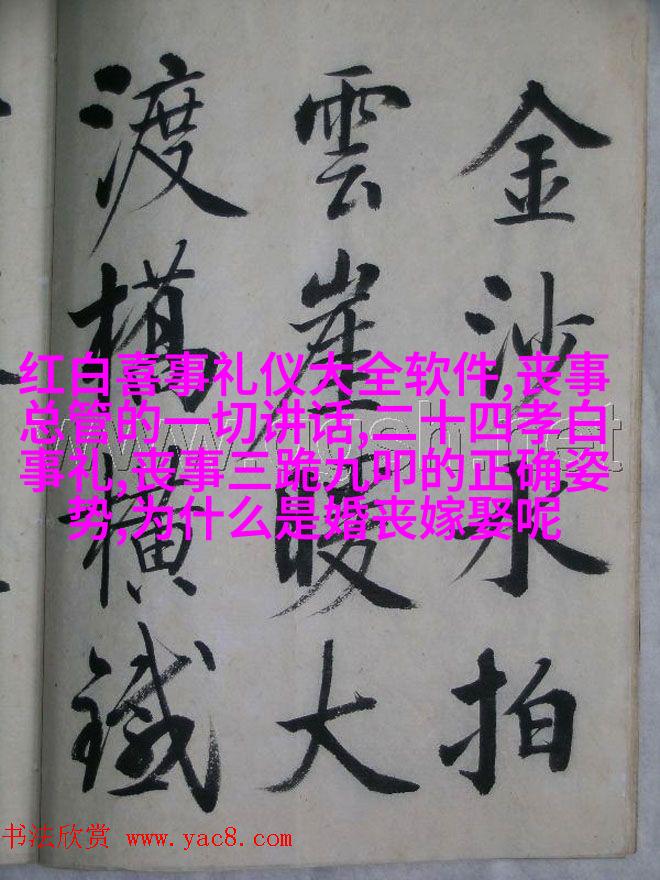 金沙水拍
雲崖暖大
渡橋橫鐵
红白喜事礼仪大全软件,丧事
总管的一切讲话,二十四孝白
事礼,丧事三跪九叩的正确姿
势,为什么是婚丧嫁娶呢
书法欣赏 www.yac8.com